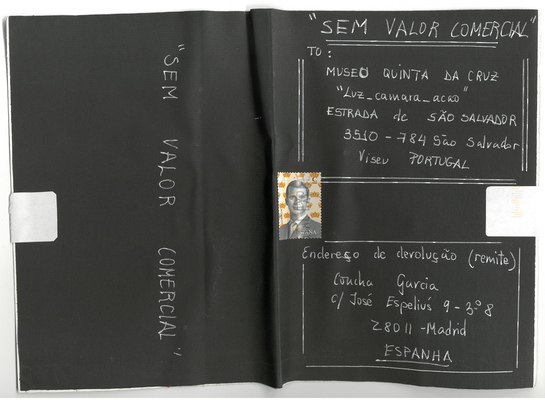 "SEM VALOR COMERCIAL"
"SEM VALOR COMERCIAL"
TO:
MUSEO QUINTA DA CRUZ
"Luz_camara_acao"
ESTRADA de SÃO SALVADOR
3510 - 784 São Salvador
Viseu PORTUGAL
Endereço de devolução (remite)
Concha Garcia
c/ José Espeliús 9 - 3º 8
28011 - Madrid
ESPANHA